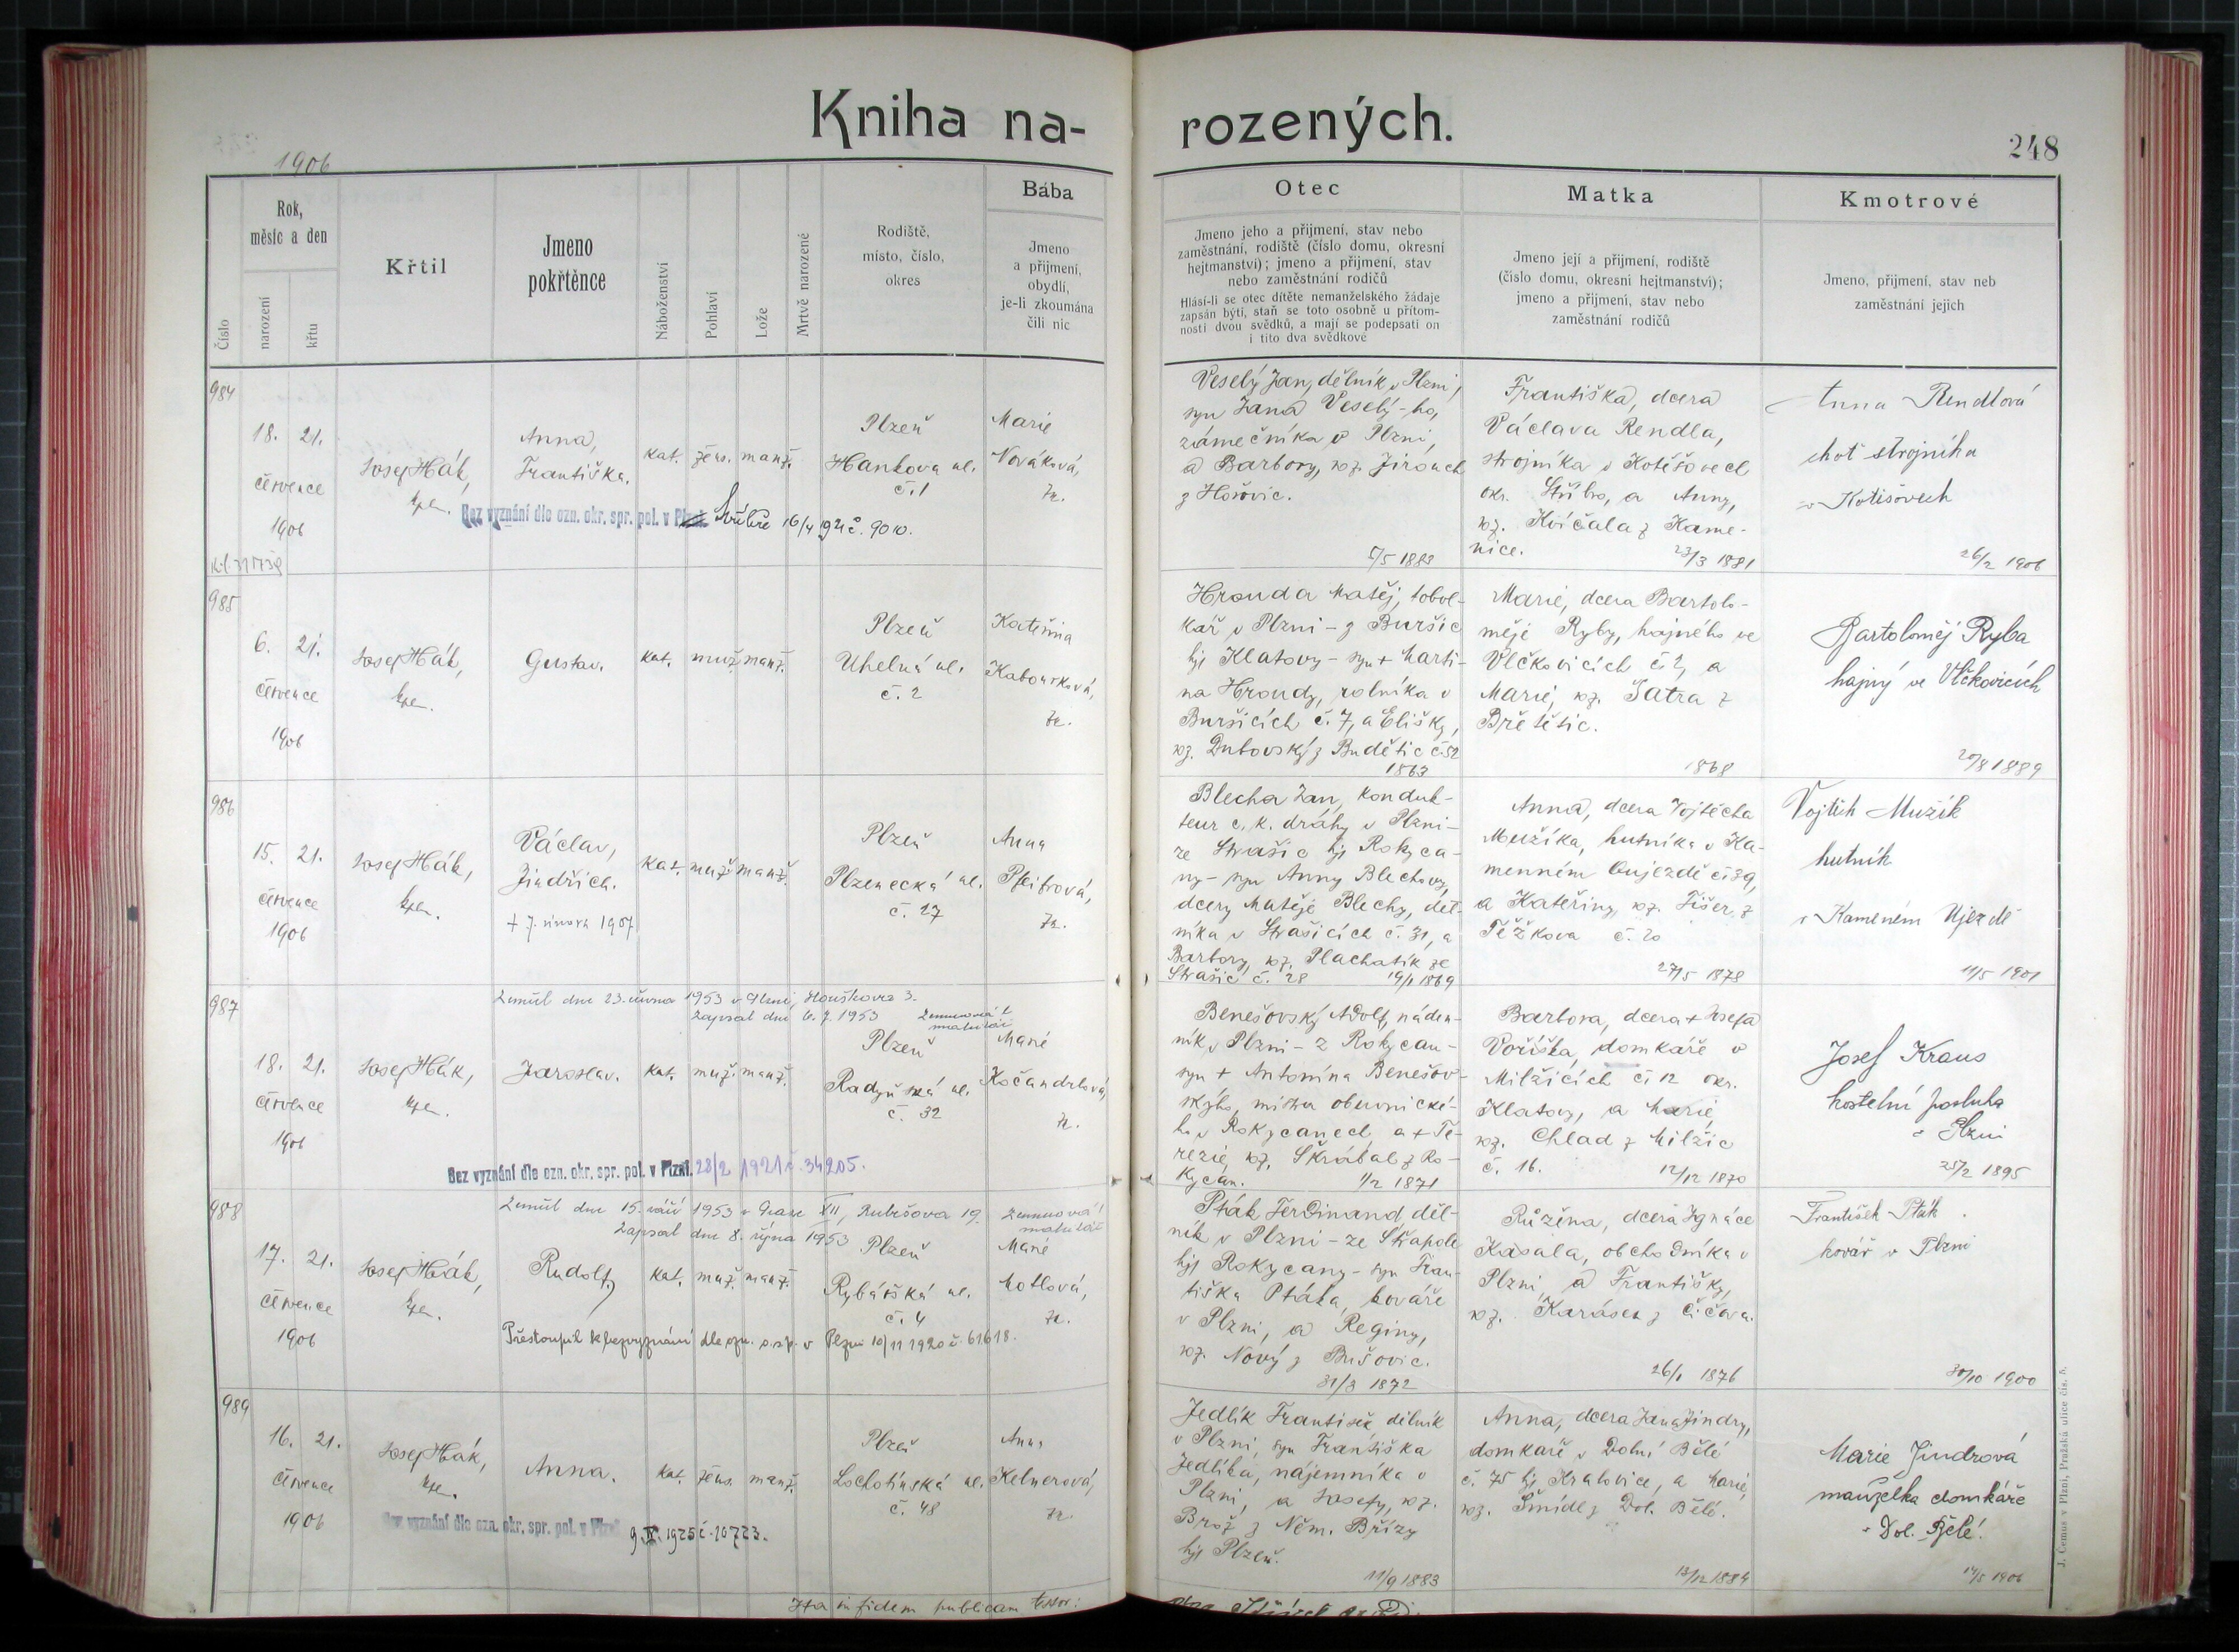 Kniha na-
rozených.
248
1906
Číslo
Rok,
měsíc a den
narození
křtu
Křtil
Jmeno
pokřtěnce
Náboženství
Pohlaví
Lože
Mrtvě narozené
Rodiště,
místo, číslo,
okres
Bába
Jmeno
a přijmení,
obydlí,
je-li zkoumána
čili nic
Otec
Jmeno jeho a přijmení, stav nebo
zaměstnání, rodiště (číslo domu, okresní
hejtmanství); jmeno a přijmení, stav
nebo zaměstnání rodičů
Hlásí-li se otec dítěte nemanželského žádaje
zapsán býti, staň se toto osobně u přítom-
nosti dvou svědků, a mají se podepsati on
i tito dva svědkové
Matka
Jmeno její a přijmení, rodiště
(číslo domu, okresní hejtmanství);
jmeno a přijmení, stav nebo
zaměstnání rodičů
Kmotrové
Jmeno, přijmení, stav neb
zaměstnání jejich
984
18. 21.
července
1906
Josef Hák,
kpl.
Anna,
Františka.
kat. žens. manž.
Plzeň
Hankova ul.
č. 1
Marie
Nováková,
zk.
Bez vyznání dle ozn. okr. spr. pol. v Stříbře 16/4 1921 č. 9010.
Veselý Jan, dělník v Plzni,
syn Jana Veselý-ho,
zámečníka v Plzni,
a Barbory, roz. Jirouch
z Hořovic.
5/5 1883
Františka, dcera
Václava Rendla,
strojníka v Kotěšovech
okr. Stříbro, a Anny,
roz. Kvíčala z Kame-
nice.
23/3 1881
Anna Rendlová
choť strojníka
v Kotěšovech
26/2 1906
985
6. 21.
července
1906
Josef Hák,
kpl.
Gustav.
kat. muž. manž.
Plzeň
Uhelná ul.
č. 2
Kateřina
Kabourková,
zk.
Hrouda Matěj, tobol-
kář v Plzni - z Buršic
hjt Klatovy - syn + Marti-
na Hroudy, rolníka v
Buršicích č. 7, a Elišky,
roz. Dubovský z Budětic č. 52
1863
Marie, dcera Bartolo-
měje Ryby, hajného ve
Vlčkovicích č. 2, a
Marie, roz. Šatra z
Břetětic.
1868
Bartoloměj Ryba
hajný ve Vlčkovicích
20/8 1889
986
15. 21.
července
1906
Josef Hák,
kpl.
Václav,
Jindřich.
+ 7. února 1907
kat. muž. manž.
Plzeň
Plzenecká ul.
č. 27
Anna
Pfeifrová,
zk.
Blecha Jan, konduk-
teur c. k. dráhy v Plzni -
ze Strašic hjt Rokyca-
ny - syn Anny Blechovy,
dcery Matěje Blechy, děl-
níka v Strašicích č. 31, a
Barbory, roz. Plachatík ze
Strašic č. 28 19/1 1869
Anna, dcera Vojtěcha
Mužíka, hutníka v Ka-
menném Oujezdě č. 39,
a Kateřiny, roz. Fišer z
Těžkova č. 20
27/5 1878
Vojtěch Mužík
hutník
v Kameném Ujezdě
11/5 1901
987
Zemřel dne 23. června 1953 v Plzni, Houškova 3.
Zapsal dne 6. 7. 1953
18. 21.
července
1906
Josef Hák,
kpl.
Jaroslav.
kat. muž. manž.
Plzeň
Radyňská ul.
č. 32
Marie
Kočandrlová,
zk.
Bez vyznání dle ozn. okr. spr. pol. v Plzni. 28/2 1921 č. 34205.
Benešovský Adolf, náden-
ník v Plzni - z Rokycan -
syn + Antonína Benešov-
ského, mistra obuvnické-
ho v Rokycanech, a + Te-
rezie, roz. Škrábal z Ro-
kycan. 1/2 1871
Barbora, dcera + Josefa
Voříška, domkáře v
Milžicích č. 12 okr.
Klatovy, a Marie,
roz. Chlad z Milžic
č. 16. 12/12 1870
Josef Kraus
kostelní posluha
v Plzni
25/2 1895
988
Zemřel dne 15. září 1953 v Praze XII, Rubešova 19.
Zapsal dne 8. října 1953
17. 21.
července
1906
Josef Hák,
kpl.
Rudolf,
kat. muž. manž.
Plzeň
Rybářská ul.
č. 4
Marie
Motlová,
zk.
Přestoupil k bezvyznání dle ozn. o. s. p. v Plzni 10/11 1920 č. 61618.
Pták Ferdinand děl-
ník v Plzni - ze Stupole
hjt Rokycany - syn Fran-
tiška Ptáka, kováře
v Plzni, a Reginy,
roz. Nový z Bušovic.
31/3 1872
Růžena, dcera Ignáce
Kasala, obchodníka v
Plzni, a Františky,
roz. Karásek z Čičova.
26/1 1876
František Pták
kovář v Plzni
30/10 1900
989
16. 21.
července
1906
Josef Hák,
kpl.
Anna.
kat. žens. manž.
Plzeň
Lochotínská ul.
č. 48
Anna
Kelnerová,
zk.
Bez vyznání dle ozn. okr. spr. pol. v Plzni 9. IV. 1925 č. 20723.
Jedlík František dělník
v Plzni, syn Františka
Jedlíka, nájemníka v
Plzni, a Josefy, roz.
Brož z Něm. Břízy
hjt Plzeň.
11/9 1883
Anna, dcera Jana Jindry,
domkáře v Dolní Bělé
č. 75 hjt Kralovice, a Marie,
roz. Šmídl z Dol. Bělé.
12/12 1884
Marie Jindrová
manželka domkáře
v Dol. Bělé.
14/5 1906
Ita in fidem publicam testor:
J. Čemus v Plzni, Pražská ulice čís. 5.